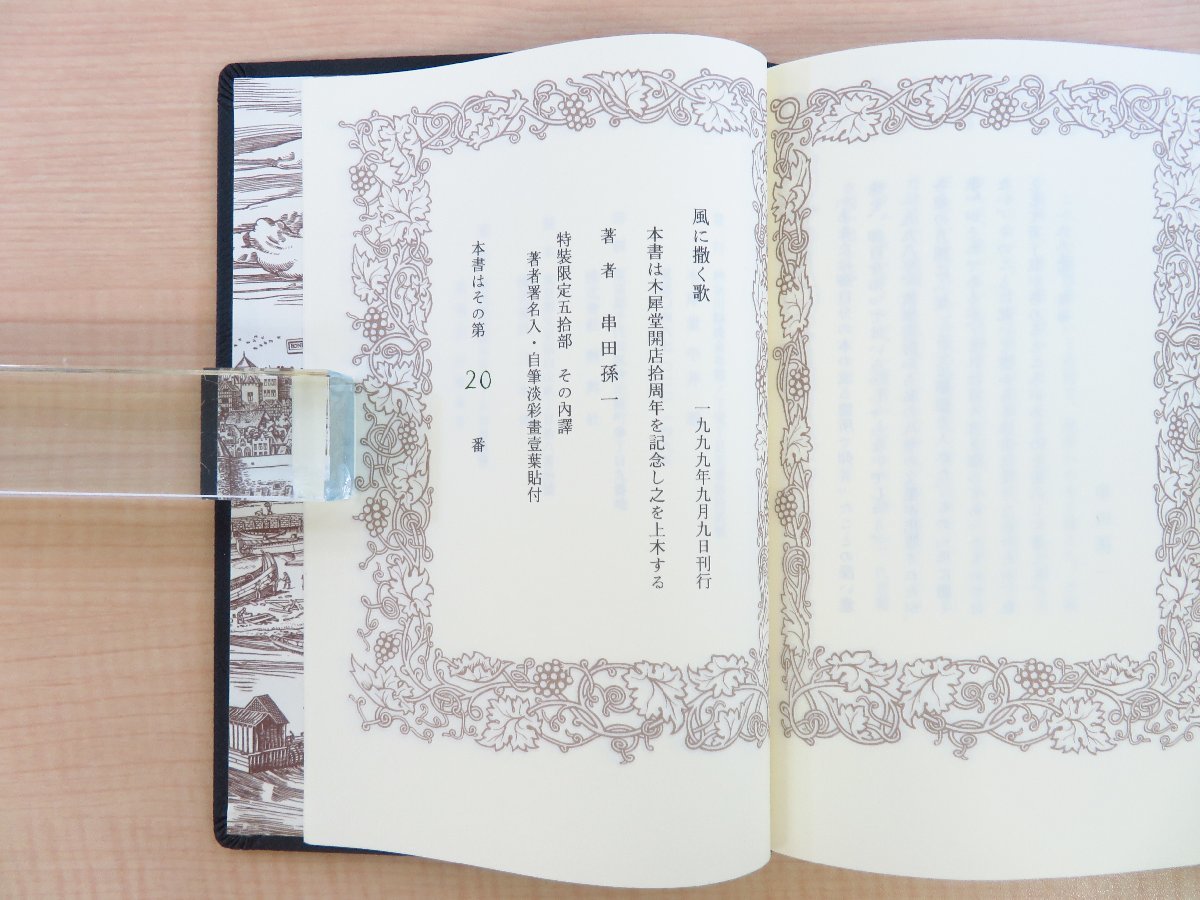 風に撒く歌　一九九九年九月九日刊行
本書は木犀堂開店拾周年を記念し之を上木する
著者　串田孫一
特裝限定五拾部　その內譯
著者署名入・自筆淡彩畫壹葉貼付
本書はその第　20　番